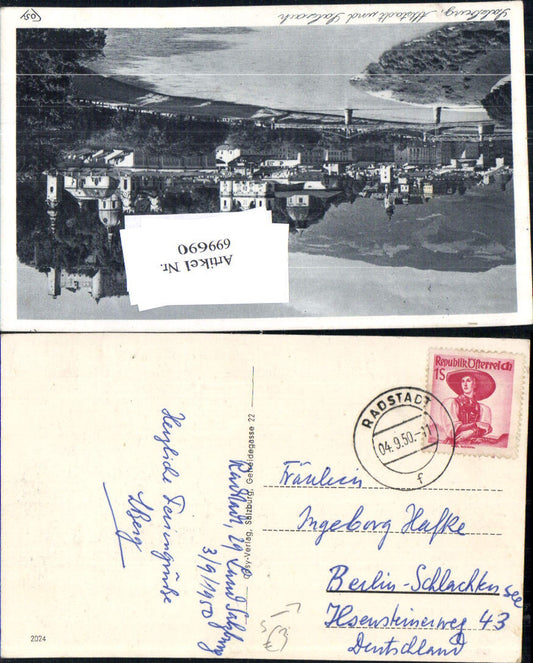 Salzburg, Altstadt und Salzach
Artikel Nr.
699690
Republik Österreich
1S
RADSTADT
04.9.50.-11
f
Fräulein
Ingeborg Hafke
Berlin-Schlachtensee
Ilsensteinerweg 43
Deutschland
Herzliche Feriengrüße
Radstadt, Land Salzburg
3/9/1950
-Verlag, Salzburg, Getreidegasse 22
2024